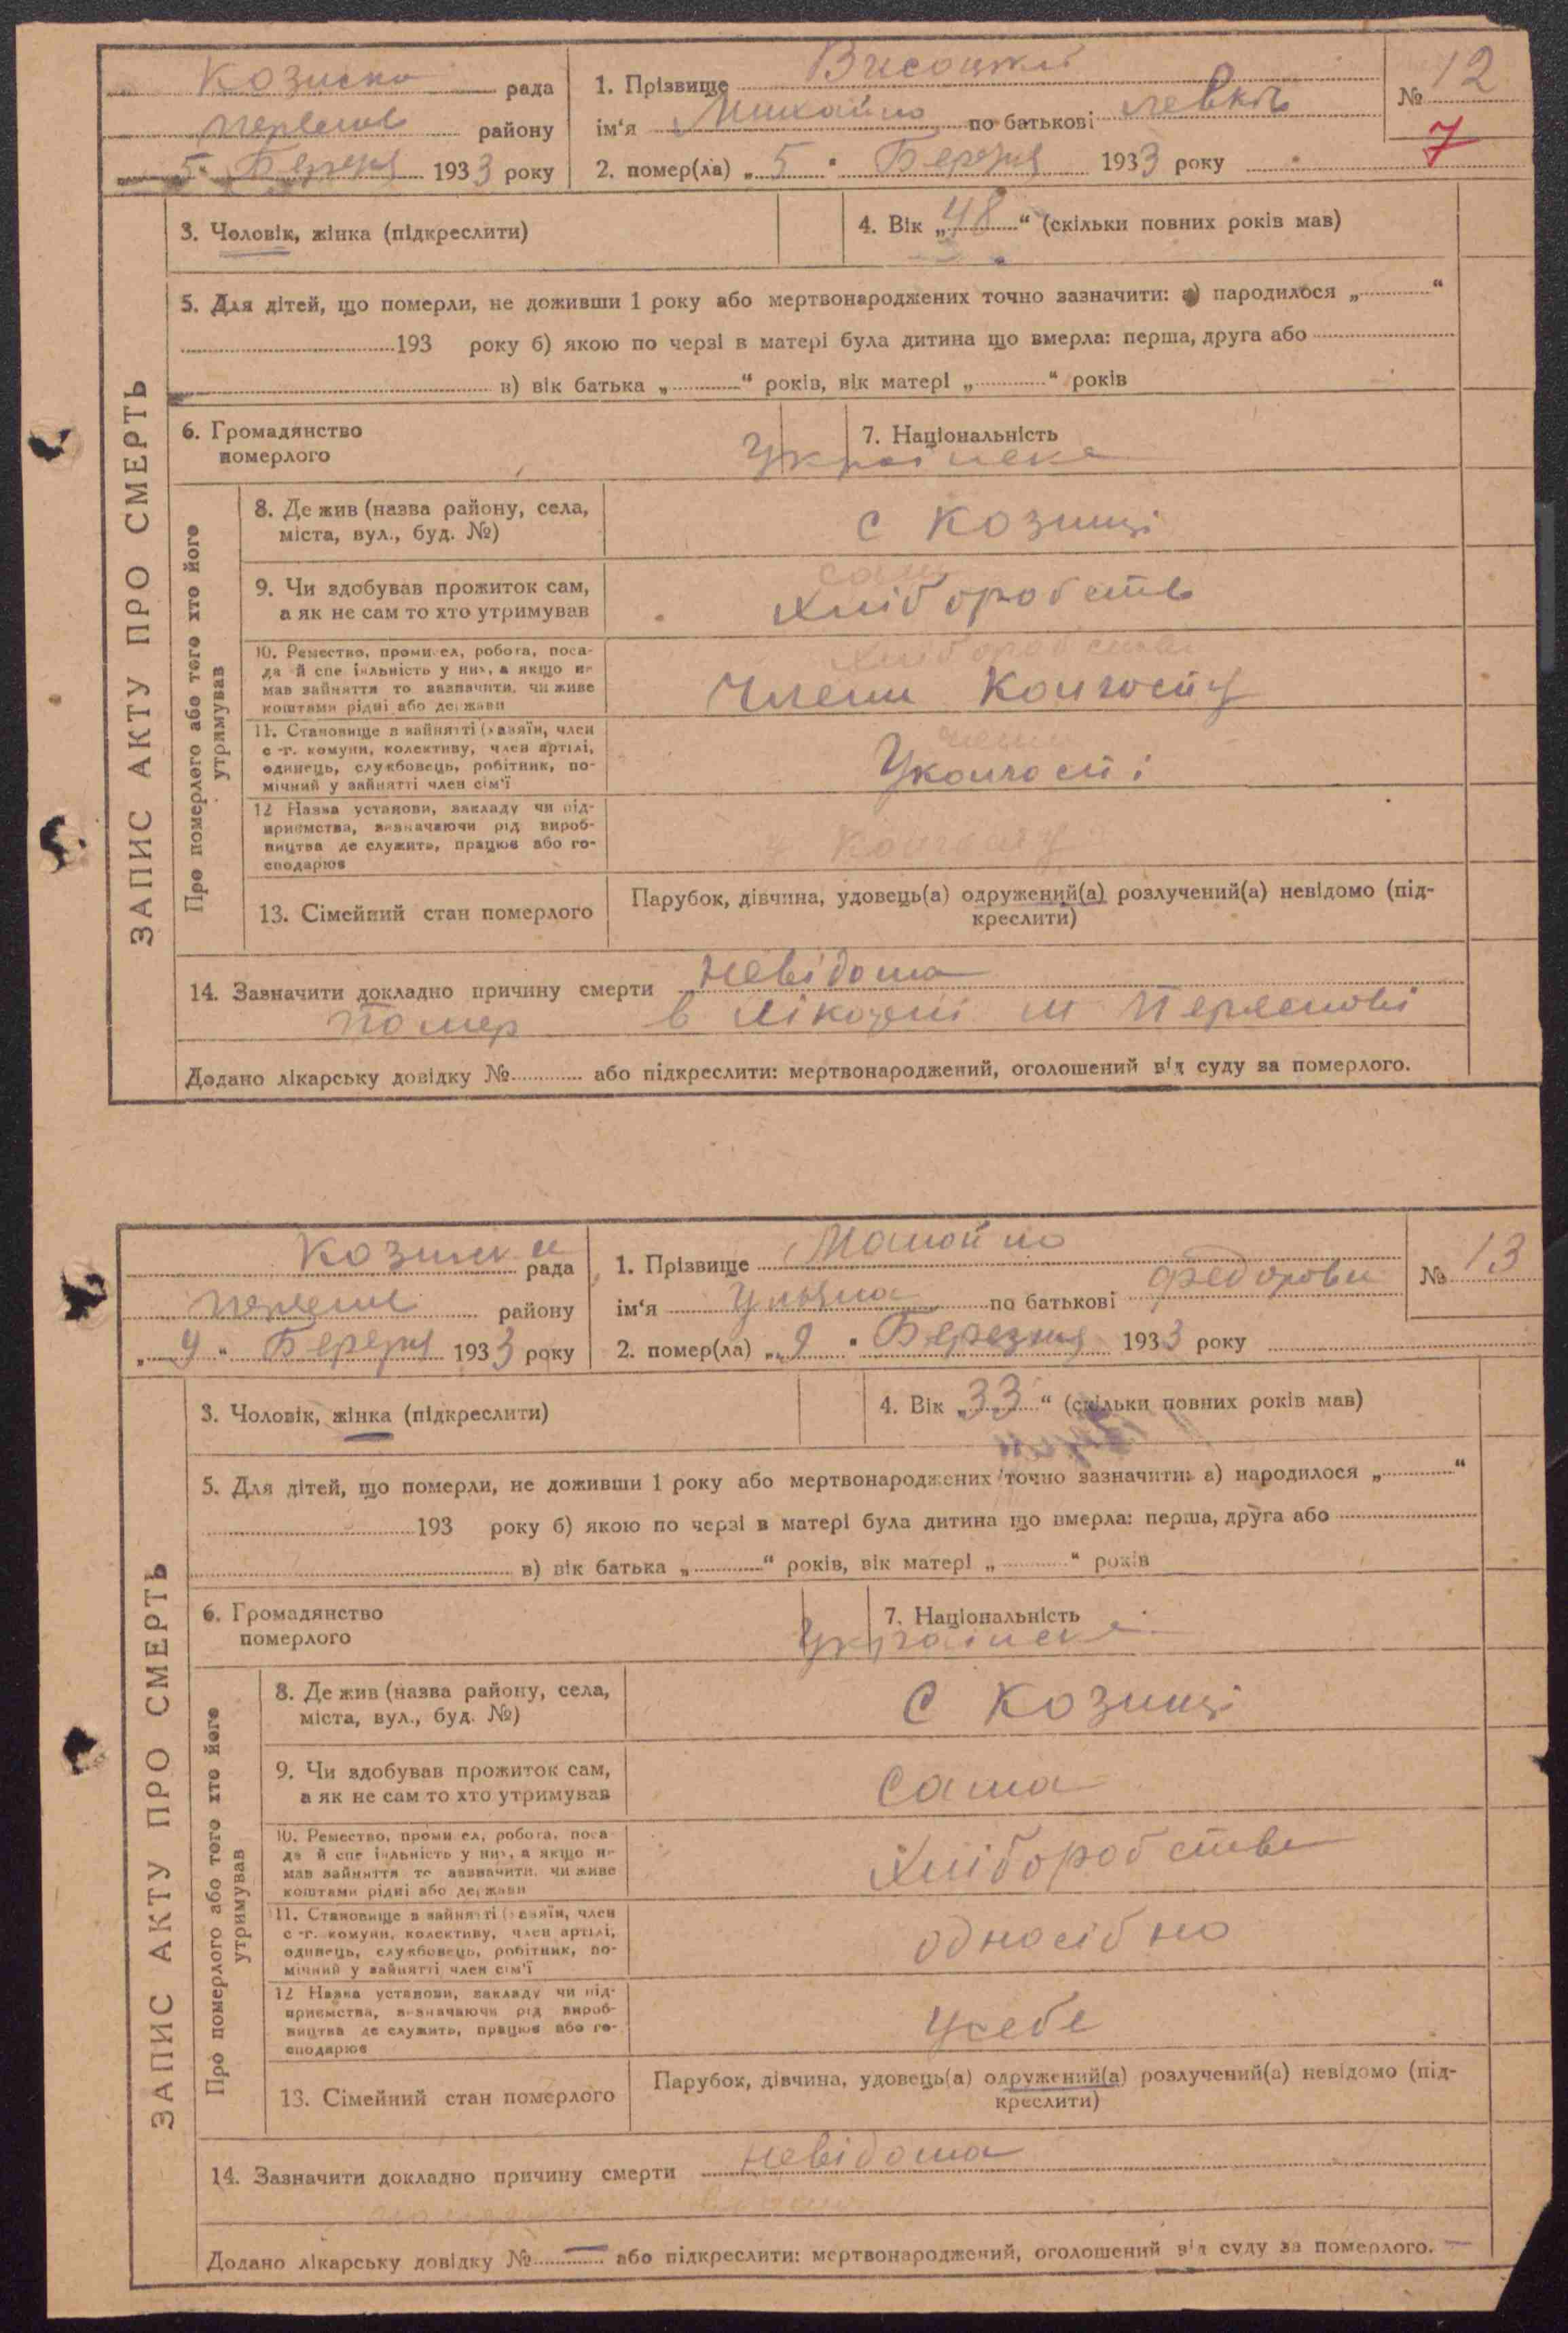 рада
району
5 Березня 1933 року
1. Прізвище Висоцкий
ім'я Михайло по батькові
2. помер(ла) „ 5 " Березня 1933 року
№ 12
7
ЗАПИС АКТУ ПРО СМЕРТЬ
3. Чоловік, жінка (підкреслити)
4. Вік „ 48 “ (скільки повних років мав)
5. Для дітей, що померли, не доживши 1 року або мертвонароджених точно зазначити: а) народилося „ “
193 року б) якою по черзі в матері була дитина що вмерла: перша, друга або
в) вік батька „ “ років, вік матері „ “ років
6. Громадянство
померлого
7. Національність
Українска
Про померлого або того хто його
утримував
8. Де жив (назва району, села,
міста, вул., буд. №)
с Козинці
9. Чи здобував прожиток сам,
а як не сам то хто утримував
сам
Хліборобств
10. Ремество, промисел, робота, поса-
да й спеціяльність у них, а якщо не
мав зайняття то зазначити, чи живе
коштами рідні або держави
Члени Колгоспу
11. Становище в зайнятті (хазяїн, член
с.-г. комуни, колективу, член артілі,
одинець, службовець, робітник, по-
мічний у зайнятті член сім'ї
Уколгоспі
12 Назва установи, закладу чи під-
приємства, зазначаючи рід вироб-
ництва де служить, працює або го-
сподарює
13. Сімейний стан померлого
Парубок, дівчина, удовець(а) одружений(а) розлучений(а) невідомо (під-
креслити)
14. Зазначити докладно причину смерти невідома
помер в лікарні м
Додано лікарську довідку № або підкреслити: мертвонароджений, оголошений від суду за померлого.
рада
району
„ 9 “ Березня 1933 року
1. Прізвище Мамойло
ім'я Уляна по батькові Федорови
2. помер(ла) „ 9 " Березня 1933 року
№ 13
ЗАПИС АКТУ ПРО СМЕРТЬ
3. Чоловік, жінка (підкреслити)
4. Вік „ 33 “ (скільки повних років мав)
5. Для дітей, що померли, не доживши 1 року або мертвонароджених точно зазначити: а) народилося „ “
193 року б) якою по черзі в матері була дитина що вмерла: перша, друга або
в) вік батька „ “ років, вік матері „ “ років
6. Громадянство
померлого
7. Національність
Українска
Про померлого або того хто його
утримував
8. Де жив (назва району, села,
міста, вул., буд. №)
с Козинці
9. Чи здобував прожиток сам,
а як не сам то хто утримував
Сама
10. Ремество, промисел, робота, поса-
да й спеціяльність у них, а якщо не
мав зайняття то зазначити, чи живе
коштами рідні або держави
Хліборобства
11. Становище в зайнятті (хазяїн, член
с.-г. комуни, колективу, член артілі,
одинець, службовець, робітник, по-
мічний у зайнятті член сім'ї
односібно
12 Назва установи, закладу чи під-
приємства, зазначаючи рід вироб-
ництва де служить, працює або го-
сподарює
Усебе
13. Сімейний стан померлого
Парубок, дівчина, удовець(а) одружений(а) розлучений(а) невідомо (під-
креслити)
14. Зазначити докладно причину смерти невідома
Додано лікарську довідку № — або підкреслити: мертвонароджений, оголошений від суду за померлого.